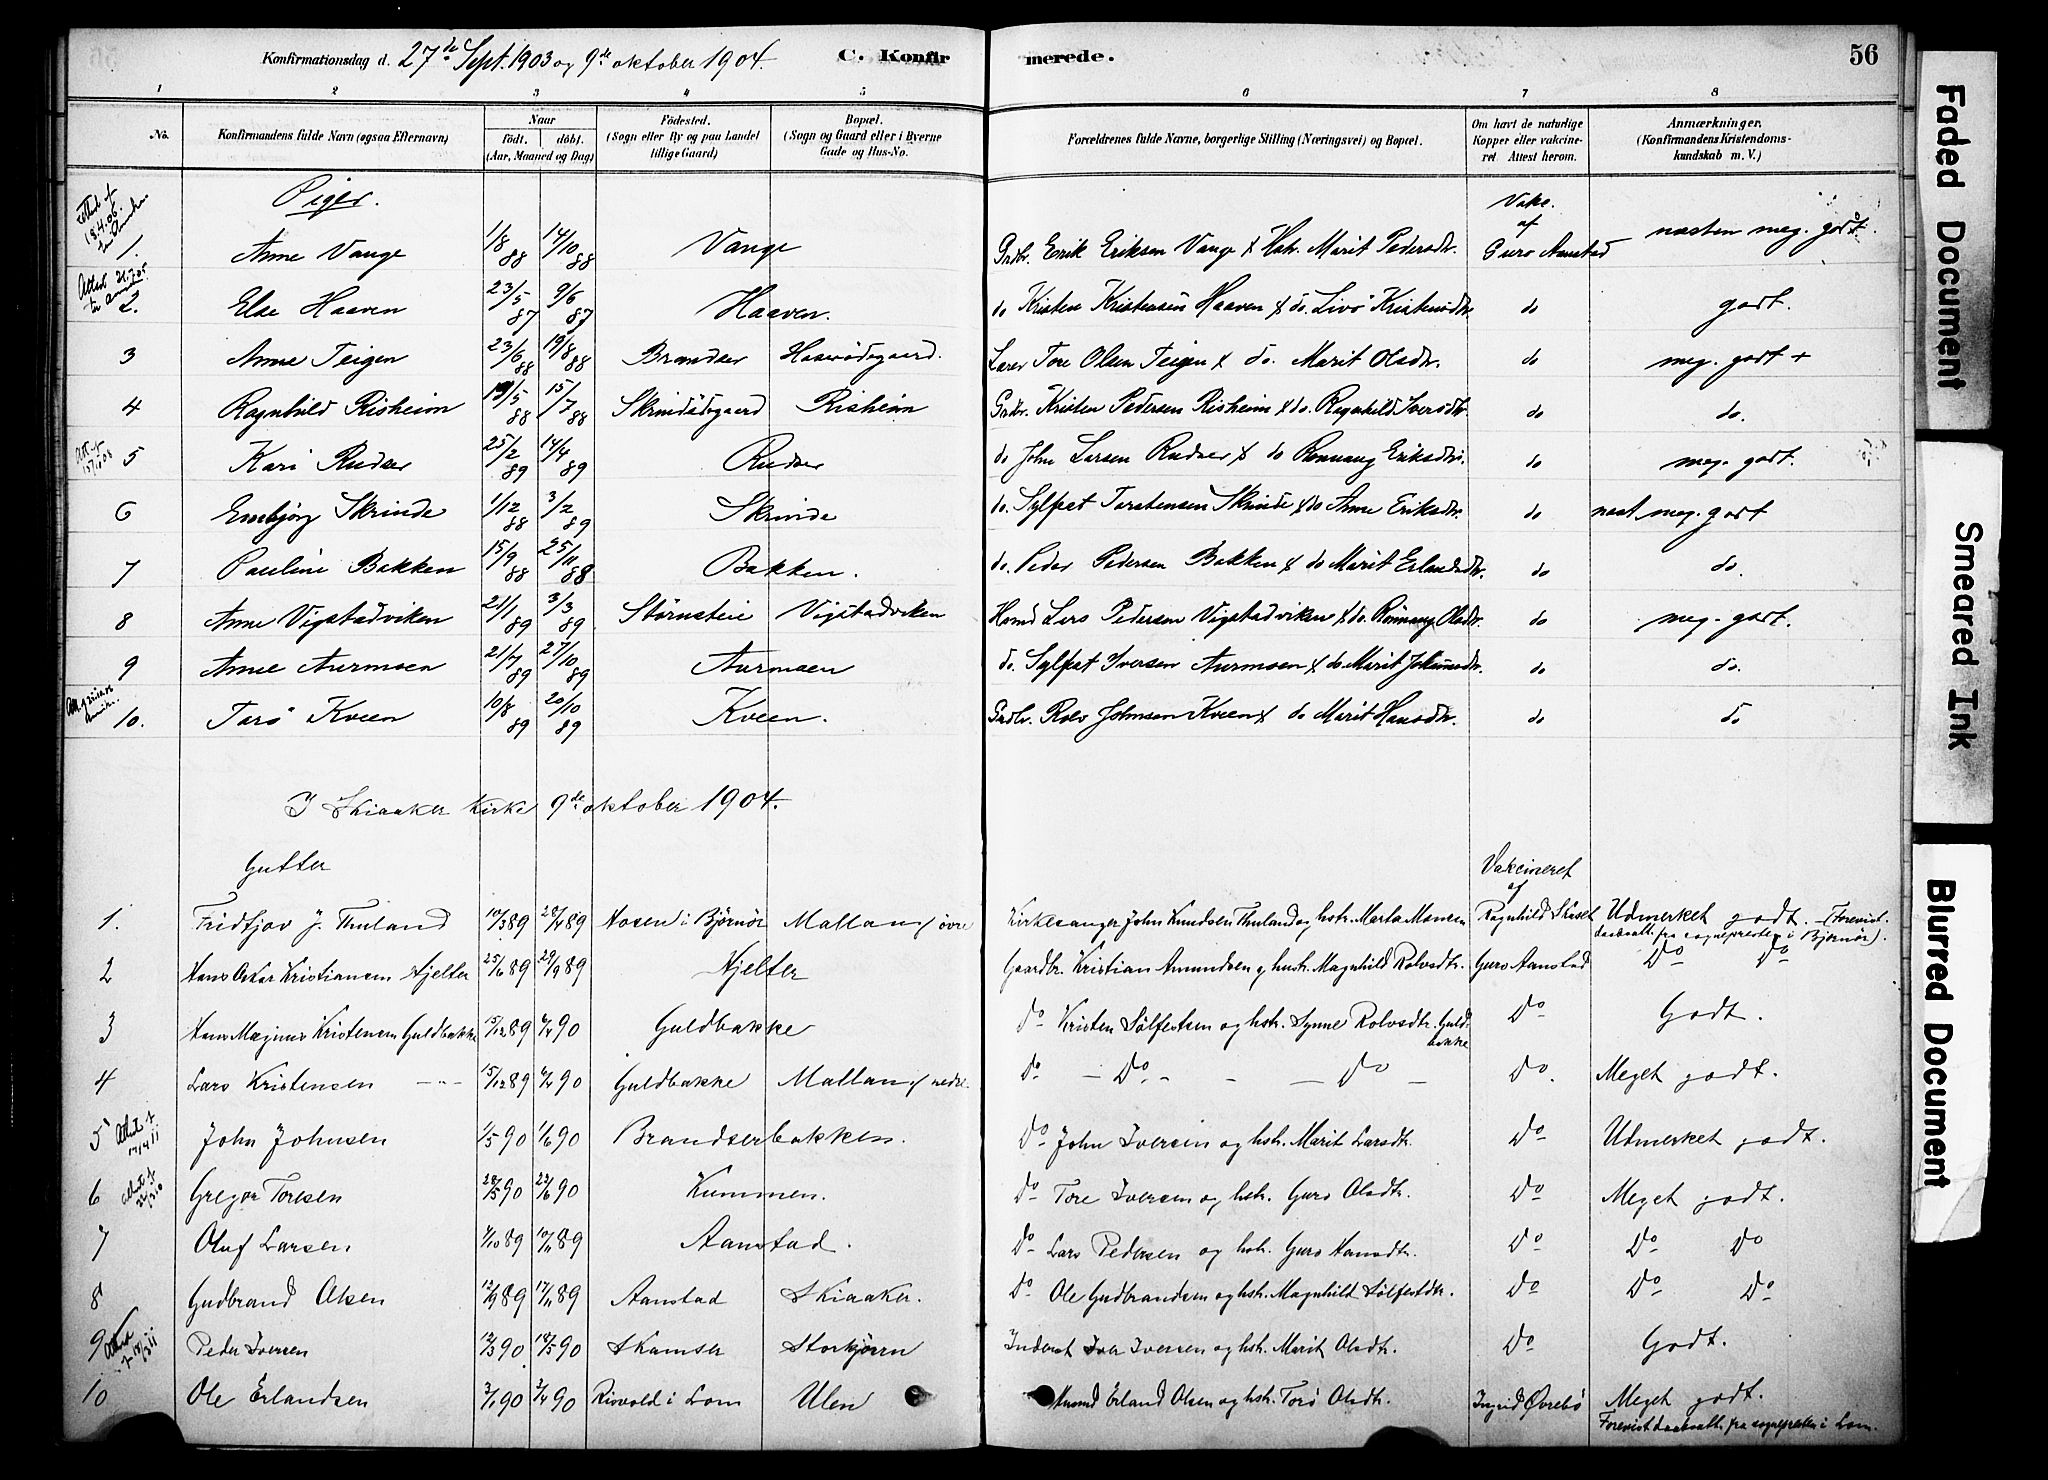 Konfirmationsdag d. 27de Sept. 1903 og 9de oktober 1904. C. Konfirmerede. 56
1 2 3 4 5 6 7 8
No. Konfirmandens fulde Navn (ogsaa Efternavn) Naar født. døbt. (Aar, Maaned og Dag) Fødested. (Sogn eller By og paa Landet tillige Gaard) Bopæl. (Sogn og Gaard eller i Byerne Gade og Hus-No. Forældrenes fulde Navne, borgerlige Stilling (Næringsvei) og Bopæl. Om havt de naturlige Kopper eller vakcineret. Attest herom. Anmærkninger. (Konfirmandens Kristendomskundskab m. V.)
Piger. Vakc. af
1. Anne Vange 1/8 88 14/10 88 Vange Grdbr. Erik Eriksen Vange & Hstr. Marit Pedersdtr. Guro Aanstad næsten meg. godt.
2. Else Haaven 23/5 87 9/6 87 Haaven. do Kristen Kristensen Haaven & do. Livö Kristensdtr. do godt.
3 Anne Teigen 23/6 88 19/8 88 Brandser Lærer Tore Olsen Teigen & do. Marit Olsdtr. do meg. godt +
4 Ragnhild Risheim 19/5 88 15/7 88 Skrindsdegaard Risheim Grdbr. Kristen Pedersen Risheim & do. Ragnhild Iversdtr. do do.
5 Kari Rudser 25/2 89 14/4 89 Rudser do John Larsen Rudser & do Rønnaug Eriksdtr. do meg. godt.
6 Embjörg Skrinde 1/12 88 3/2 89 Skrinde do. Sylfest Torstensen Skrinde & do Anne Eriksdtr. do næst. meg. godt
7 Pauline Bakken 15/9 88 25/11 88 Bakken. do. Peder Pedersen Bakken & do Marit Erlandsdtr. do do.
8 Anne Vigstadviken 21/1 89 3/3 89 Störnstein Vigstadviken Husmd Lars Pedersen Vigstadviken & do. Rönnaug Olsdtr. do meg. godt.
9 Anne Aurmoen 21/7 89 27/10 89 Aurmoen do. Sylfest Iversen Aurmoen & do. Marit Johannesdtr. do do.
10. Torö Kveen 10/8 89 20/10 89 Kveen. Grdbr. Rolv Johnsen Kveen & do Marit Hansdtr. do do
I Skiaaker Kirke 9de oktober 1904.
Gutter Vakcineret af
1. Fridtjov J. Thuland 10/3 89 28/4 89 Aosen i Bjørnør Malland/øvre Kirkesanger John Knudsen Thuland og hstr. Marta Monsen Ragnhild Skaset Udmerket godt. (Forevist daabsatt. fra sognepresten i Bjørnør).
2 Hans Oskar Kristiansen Hjelter 25/6 89 29/9 89 Hjelter Gaardbr. Kristian Amundsen og hustr. Magnhild Rolvsdtr. Guro Aanstad Do Do
3 Hans Magnus Kristensen Guldbakke 15/12 89 4/4 90 Guldbakke Do Kristen Sölfestsen og hstr. Synne Rolvsdtr. Guldbakke Do Godt.
4 Lars Kristensen — " — 15/12 89 4/4 90 Guldbakke Malland/nedre. Do — Do. — — Do — Do. Meget godt.
5 John Johnsen 1/5 90 1/6 90 Brandserbakken. Do John Iversen og hstr. Marit Larsdtr. Do Udmerket godt.
6 Gregor Toresen 28/5 90 22/6 90 Kummen. Do Tore Iversen og hstr. Guro Olsdtr. Do Meget godt.
7 Oluf Larsen 4/10 89 10/11 89 Aanstad. Do Lars Pedersen og hstr. Guro Hansdtr. Do Do Do
8 Gudbrand Olsen 12/9 89 17/11 89 Aanstad Skiaaker. Do Ole Gudbrandsen og hstr. Magnhild Sölfestdtr. Do Do Do
9 Peder Iversen 12/3 90 18/5 90 Skamser Storkjørn Inderst Iver Iversen og hstr. Marit Olsdtr. Do Godt.
10 Ole Erlandsen 3/1 90 3/4 90 Risvold i Lom Ulen Husmd Erland Olsen og hstr. Torö Olsdtr. Ingrid Øvrebö Meget godt. Forevist daabsatt. fra sognepresten i Lom.
Faded Document
Smeared Ink
Blurred Document